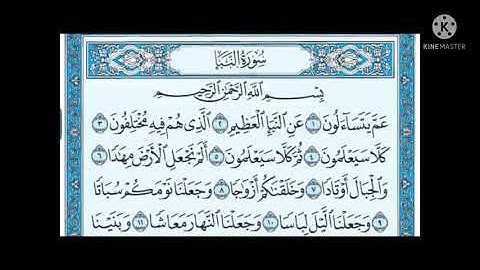 KINEMASTER
سُورَةُ النَّبَإِ
بِسْمِ اللَّهِ الرَّحْمَٰنِ الرَّحِيمِ
عَمَّ يَتَسَاءَلُونَ ١ عَنِ النَّبَإِ الْعَظِيمِ ٢ الَّذِي هُمْ فِيهِ مُخْتَلِفُونَ ٣
كَلَّا سَيَعْلَمُونَ ٤ ثُمَّ كَلَّا سَيَعْلَمُونَ ٥ أَلَمْ نَجْعَلِ الْأَرْضَ مِهَٰدًا ٦
وَالْجِبَالَ أَوْتَادًا ٧ وَخَلَقْنَٰكُمْ أَزْوَٰجًا ٨ وَجَعَلْنَا نَوْمَكُمْ سُبَاتًا
٩ وَجَعَلْنَا الَّيْلَ لِبَاسًا ١٠ وَجَعَلْنَا النَّهَارَ مَعَاشًا ١١ وَبَنَيْنَا